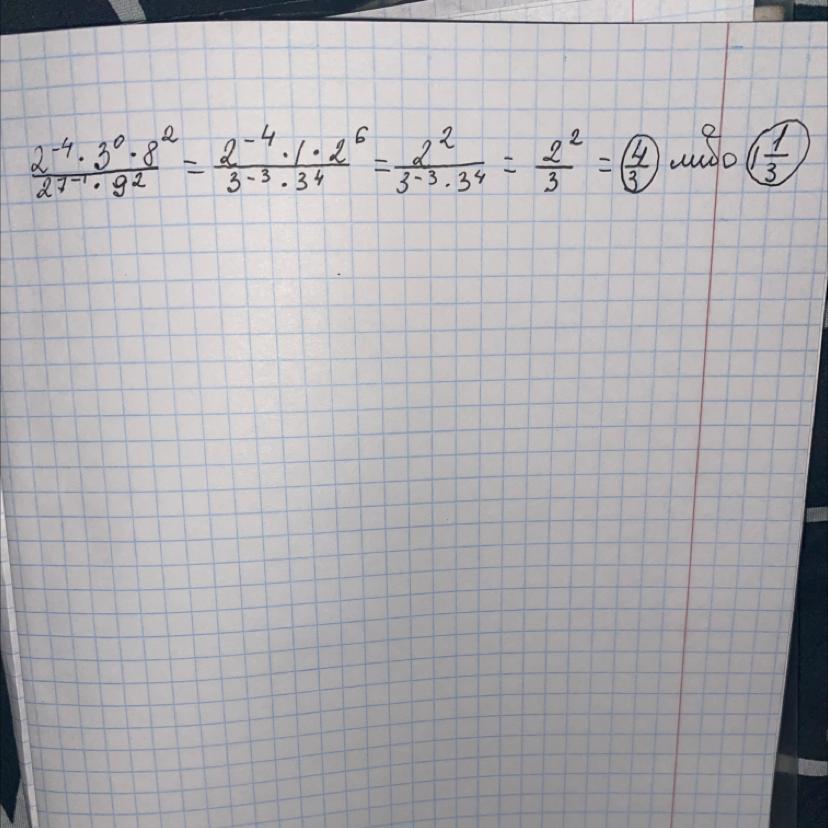 2⁻⁴·3⁰·8² / 27⁻¹·9² = 2⁻⁴·1·2⁶ / 3⁻³·3⁴ = 2² / 3⁻³·3⁴ = 2² / 3 = 4/3 либо 1 1/3